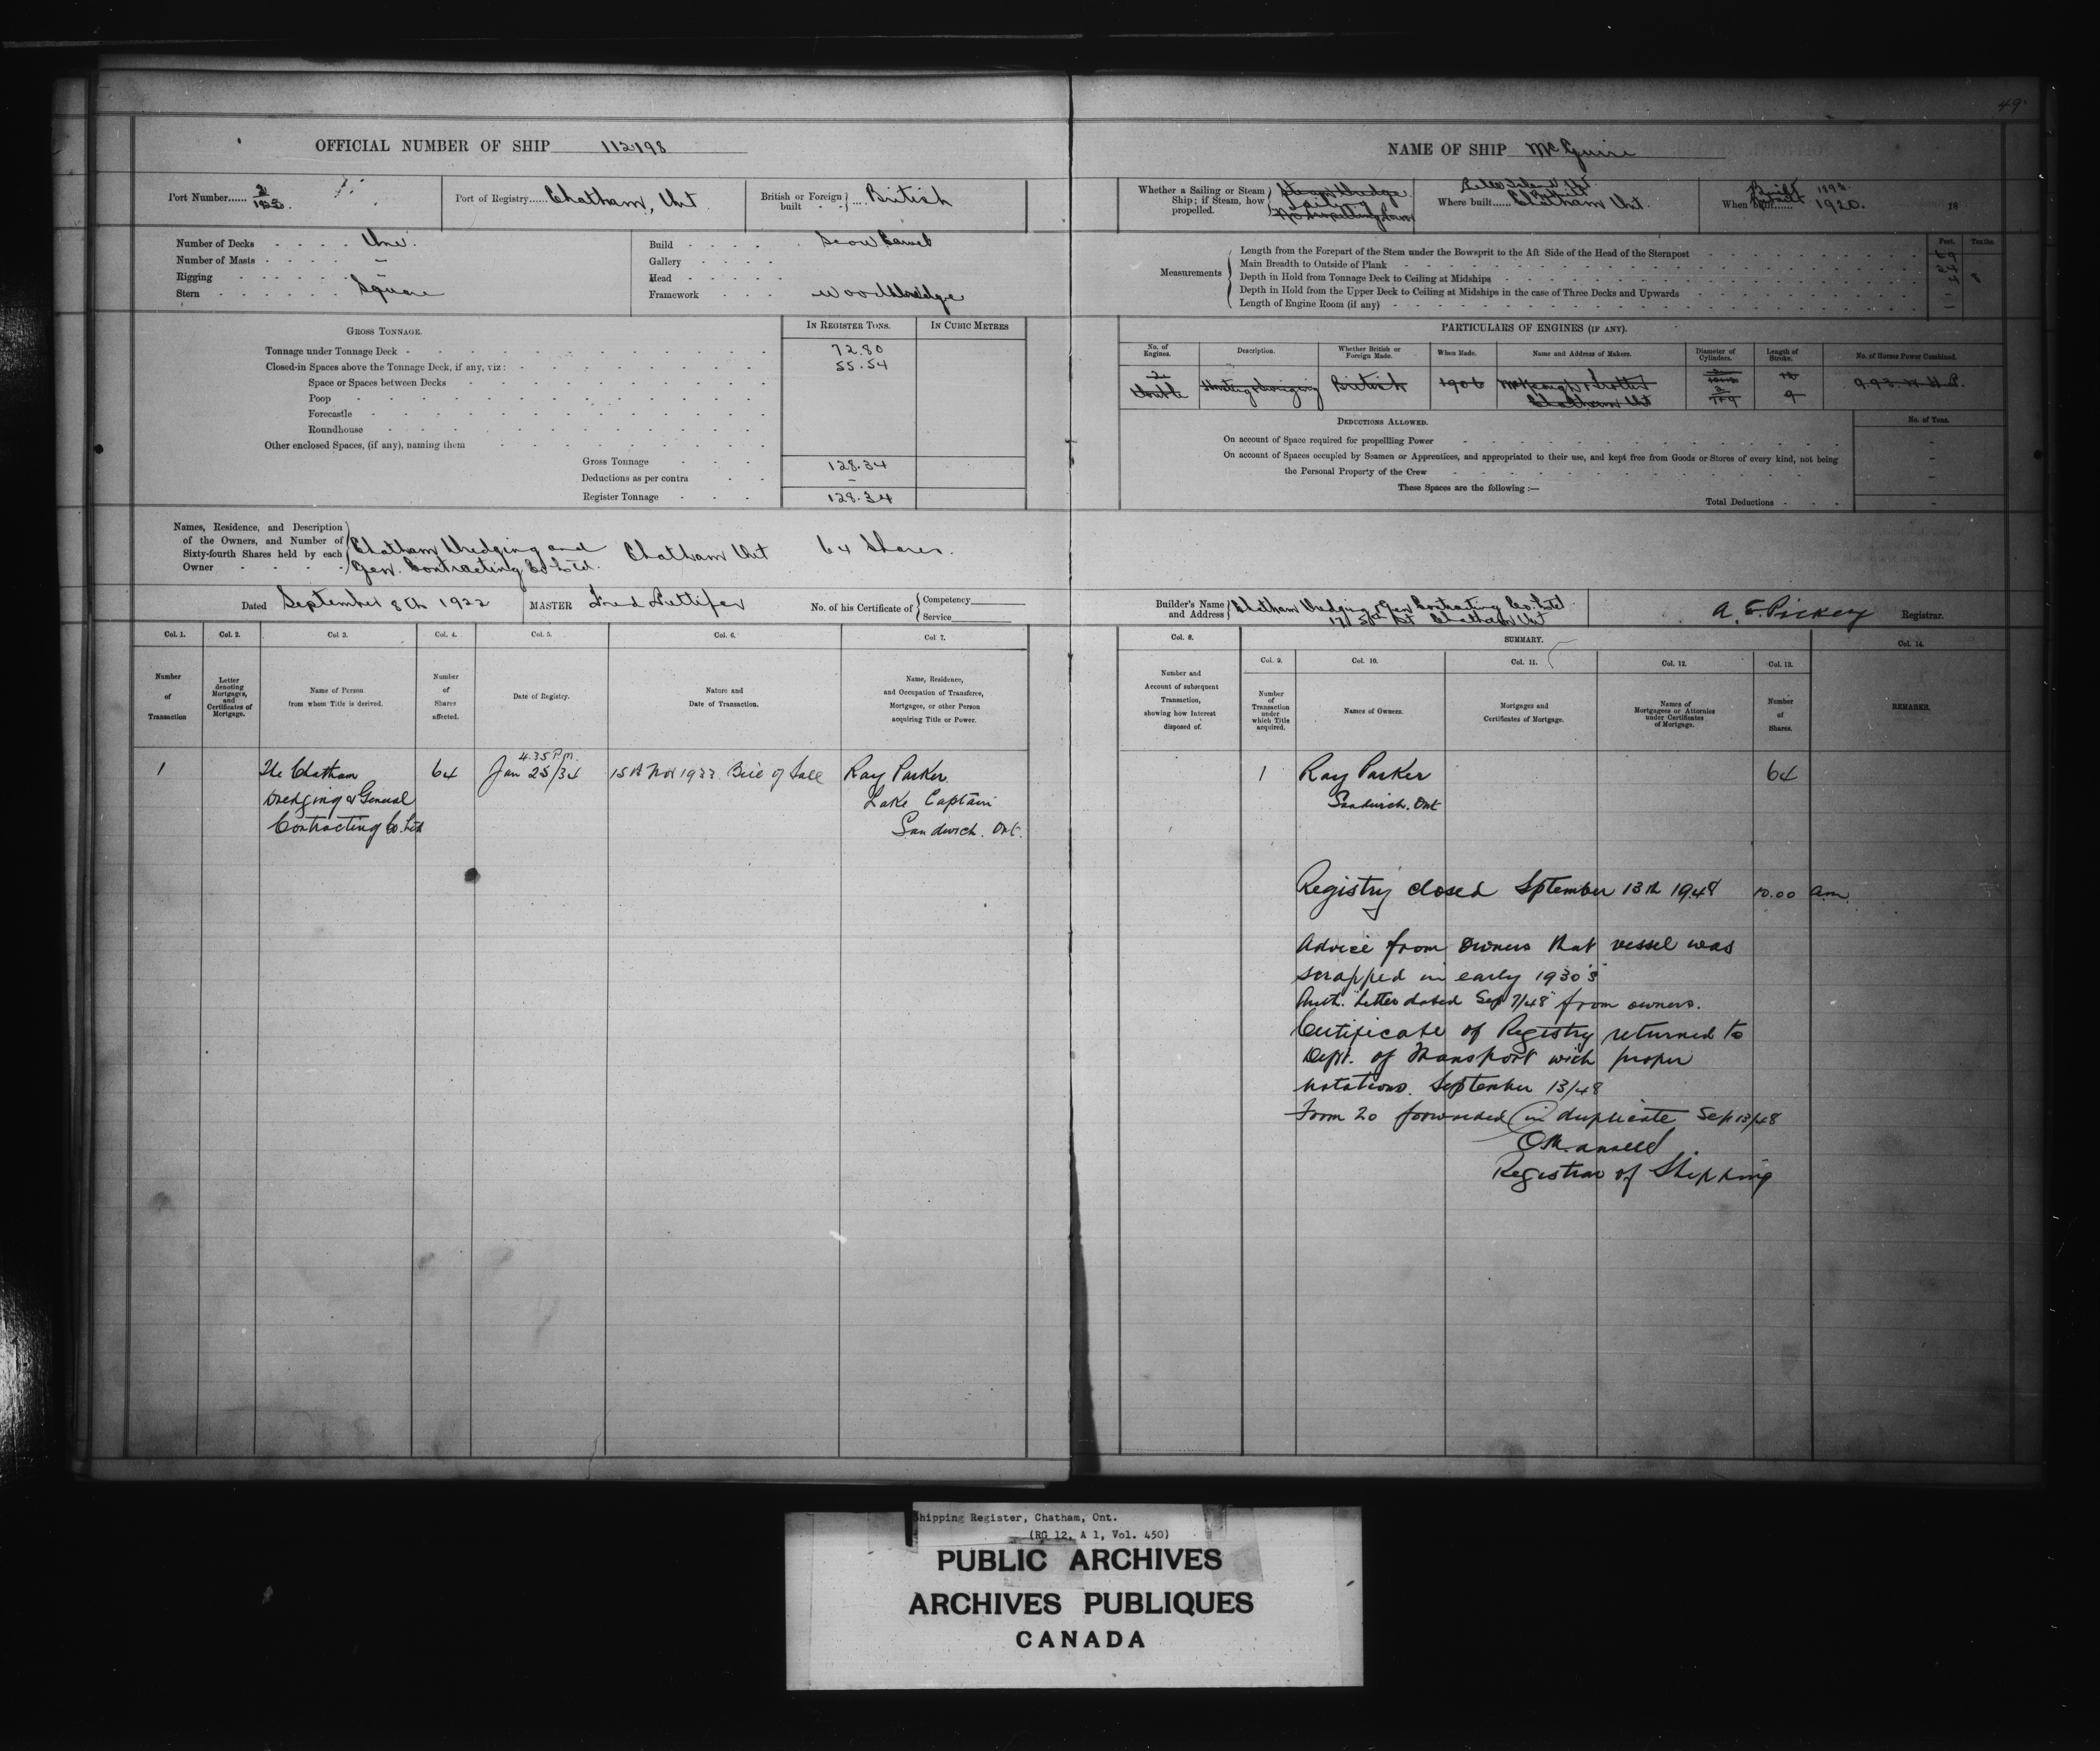 49
OFFICIAL NUMBER OF SHIP 112198
NAME OF SHIP McGuire
Port Number...... 2/1922.
Port of Registry...... Chatham, Ont
British or Foreign built British
Whether a Sailing or Steam Ship; if Steam, how propelled. Steam Dredge Sailing No propelling power
Where built...... Chatham Ont.
When built...... Built 1893. Rebuilt 1920. 18
Number of Decks One.
Number of Masts –
Rigging –
Stern Square
Build Scow Carvel
Gallery
Head
Framework Wood dredge
Measurements
Length from the Forepart of the Stem under the Bowsprit to the Aft Side of the Head of the Sternpost
Main Breadth to Outside of Plank 24
Depth in Hold from Tonnage Deck to Ceiling at Midships 7 8
Depth in Hold from the Upper Deck to Ceiling at Midships in the case of Three Decks and Upwards –
Length of Engine Room (if any) –
Feet. Tenths.
GROSS TONNAGE.
IN REGISTER TONS.
IN CUBIC METRES
Tonnage under Tonnage Deck 72.80
Closed-in Spaces above the Tonnage Deck, if any, viz: 55.54
Space or Spaces between Decks
Poop
Forecastle
Roundhouse
Other enclosed Spaces, (if any), naming them
Gross Tonnage 128.34
Deductions as per contra –
Register Tonnage 128.34
PARTICULARS OF ENGINES (IF ANY).
No. of Engines.
Description.
Whether British or Foreign Made.
When Made.
Name and Address of Makers.
Diameter of Cylinders.
Length of Stroke.
No. of Horses Power Combined.
2 Double
Hoisting & Swinging
British
1906
McKeough & Trotter Chatham Ont
12
9
9.93 N.H.P.
DEDUCTIONS ALLOWED.
No. of Tons.
On account of Space required for propellling Power –
On account of Spaces occupied by Seamen or Apprentices, and appropriated to their use, and kept free from Goods or Stores of every kind, not being
the Personal Property of the Crew –
These Spaces are the following :—
Total Deductions –
Names, Residence, and Description of the Owners, and Number of Sixty-fourth Shares held by each Owner
Chatham Dredging and Gen. Contracting Co. Ltd. Chatham Ont 64 Shares.
Dated September 8th 1922
MASTER Fred Pettifer
No. of his Certificate of Competency Service
Builder's Name and Address Chatham Dredging & Gen Contracting Co. Ltd.
Chatham Ont
A. E. Pickey Registrar.
Col. 1. Col. 2. Col 3. Col. 4. Col. 5. Col. 6. Col 7.
Col. 8. SUMMARY. Col. 14.
Col. 9. Col. 10. Col. 11. Col. 12. Col. 13.
Number of Transaction
Letter denoting Mortgages, and Certificates of Mortgage.
Name of Person from whom Title is derived.
Number of Shares affected.
Date of Registry.
Nature and Date of Transaction.
Name, Residence, and Occupation of Transferee, Mortgagee, or other Person acquiring Title or Power.
Number and Account of subsequent Transaction, showing how Interest disposed of.
Number of Transaction under which Title acquired.
Names of Owners.
Mortgages and Certificates of Mortgage.
Names of Mortgagees or Attornies under Certificates of Mortgage.
Number of Shares.
REMARKS.
1 The Chatham Dredging & General Contracting Co. Ltd
64
4.35 P.m. Jan 25/34
15th Nov 1933 Bill of Sale
Ray Parker
Lake Captain
Sandwich. Ont.
1 Ray Parker 64
Sandwich. Ont
Registry closed Sptember 13th 1948 10.00 a.m.
Advice from owners that vessel was
scrapped in early 1930's
Auth. Letter dated Sep 7/48 from owners.
Certificate of Registry returned to
Dept. of Transport with proper
notations. September 13/48
Form 20 forwarded in duplicate Sep 13/48
Registrar of Shipping
Shipping Register, Chatham, Ont.
(RG 12, A 1, Vol. 450)
PUBLIC ARCHIVES
ARCHIVES PUBLIQUES
CANADA